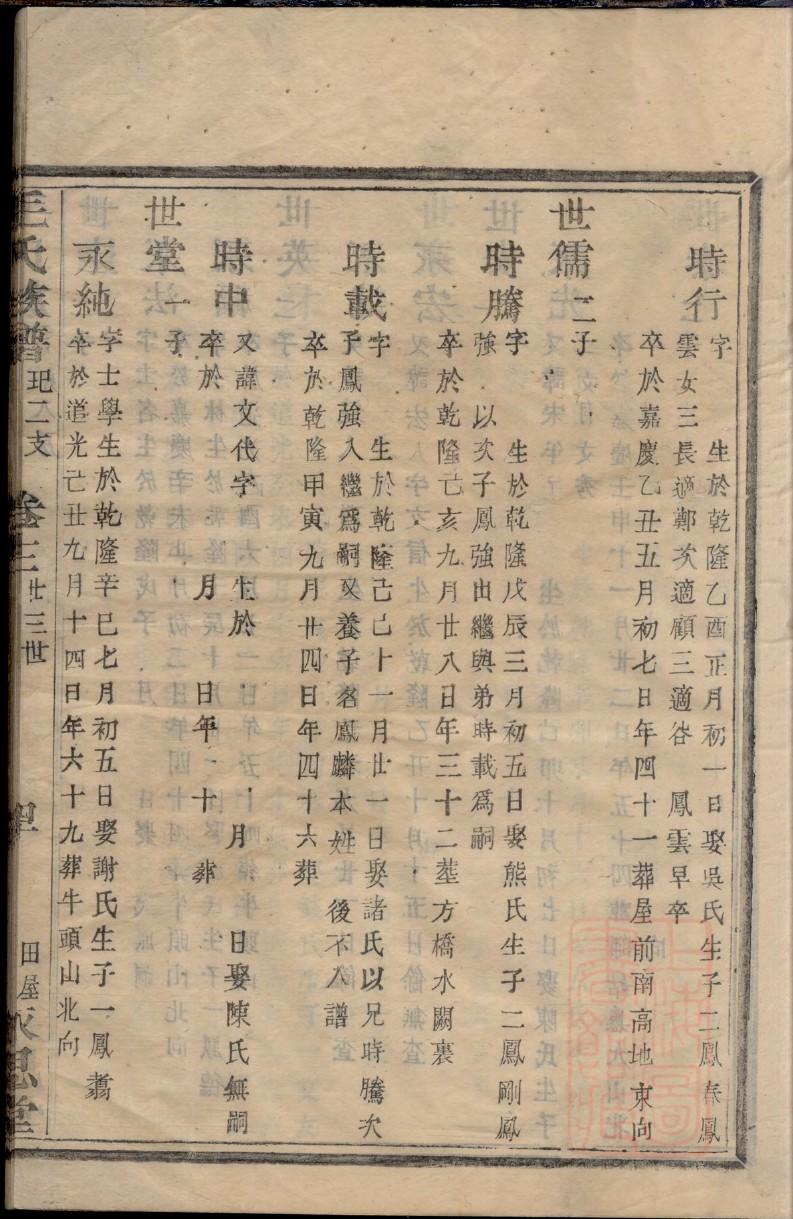 時行字 生於乾隆乙酉正月初一日娶吳氏生子二鳳春鳳
雲女三長適鄭次適顧三適咎 鳳雲早卒
卒於嘉慶乙丑五月初七日年四十一葬屋前南高地東向
世儒二子
時騰字 生於乾隆戊辰三月初五日娶熊氏生子二鳳剛鳳
強 以次子鳳強出繼與弟時載爲嗣
卒於乾隆己亥九月廿八日年三十二塟方橋水闕裏
時載字 生於乾隆己巳十一月廿一日娶諸氏以兄時騰次
子鳳強入繼爲嗣又養子名鳳麟本姓 後不入譜
卒於乾隆甲寅九月廿四日年四十六葬
時中又諱文代字 生於 月 日娶陳氏無嗣
卒於 月 日年 十 葬
世堂一子
永純字士學生於乾隆辛巳七月初五日娶謝氏生子一鳳翥
卒於道光己丑九月十四日年六十九葬牛頭山北向
氏族譜 玘二支 卷三 廿三世 田屋永思堂